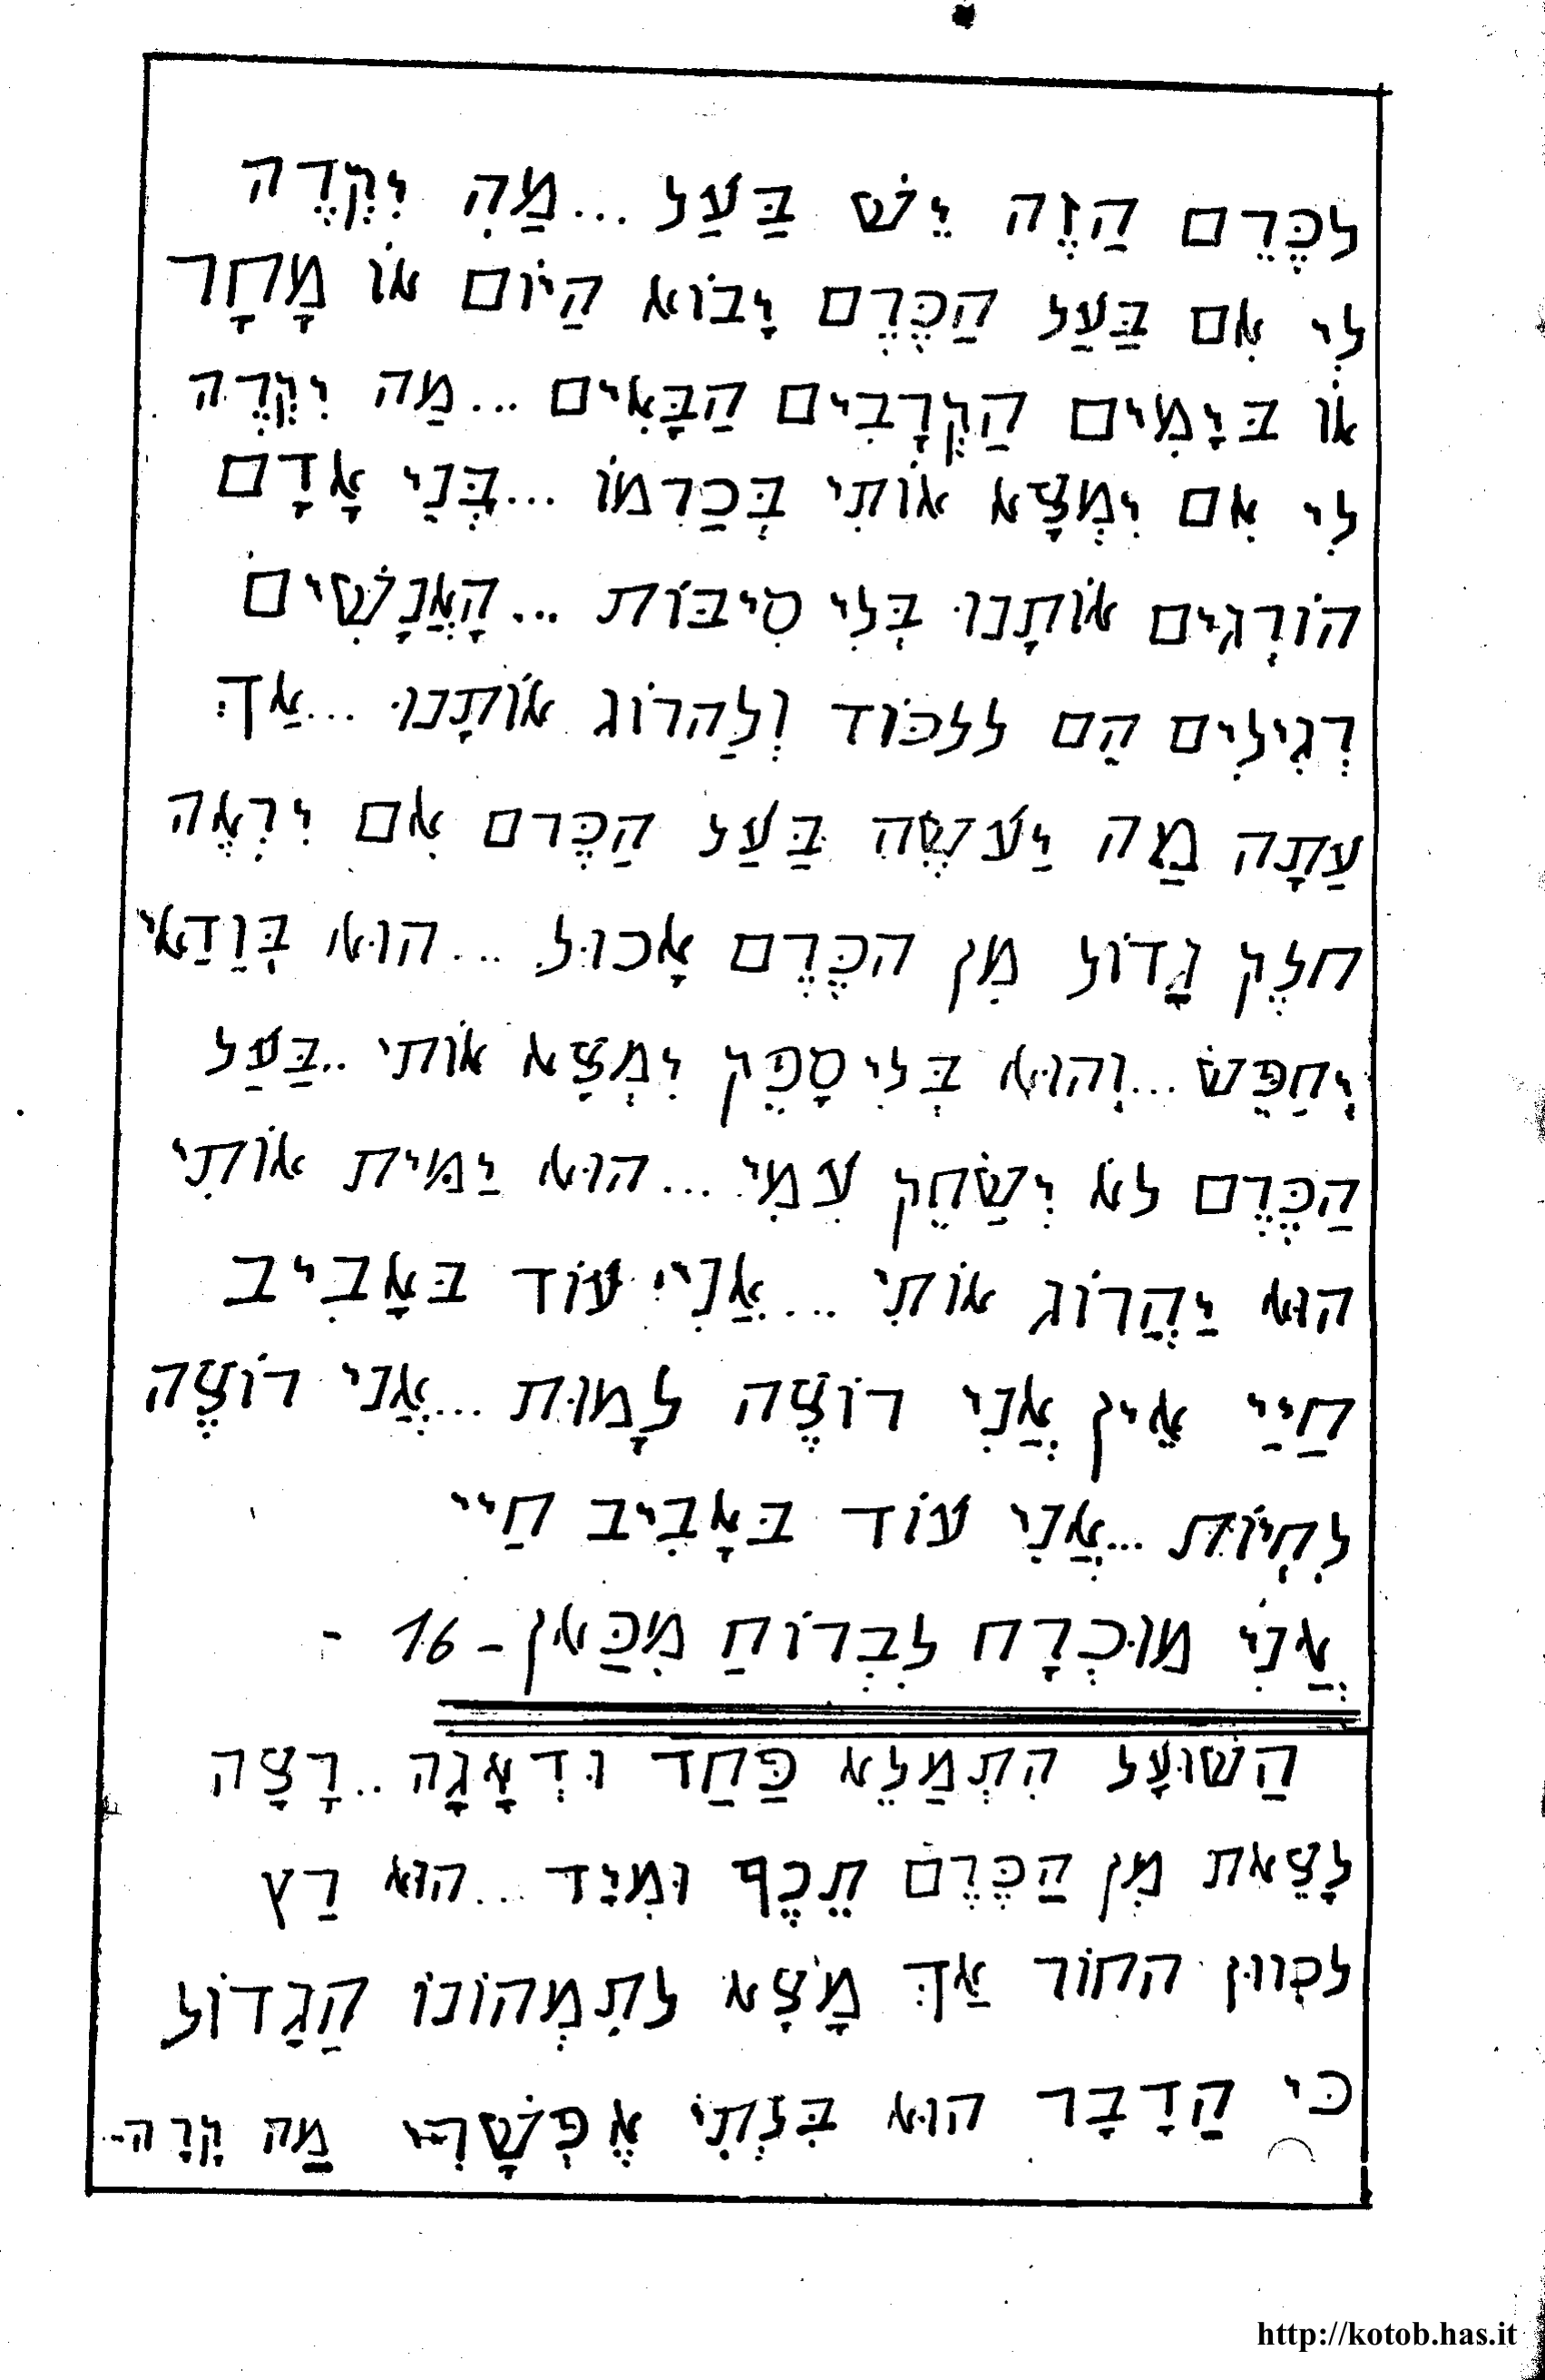 לכֶּרֵם הַזֶה יֵשׁ בַּעַל ...מַהִ יִקְרֶה
לִי אִם בַּעַל הַכֶּרֶם יָבוֹא הַיוֹם אוֹ מָחָר
אוֹ בּיָמִים הַקְרָבִים הַבָּאִים ...מַה יִקְרֶה
לִי אִם יִמְצָא אוֹתִי בְּכַרמוֹ ...בְּנֵי אָדָם
הוֹרְגִים אוֹתָנוּ בְּלִי סִיבּוֹת ...הָאֲנָשִׁים
רְגִילִים הֵם ללכּוֹד וְלַהרוֹג אוֹתָנוּ ...אַךְ
עַתָה מַה יַעֹשֶה בַּעַל הַכֶּרם אִם יִרְאֶה
חלֶק גָדוֹל מִן הכֶּרֶם אָכוּל ...הוּא בְּוַדַאי
יְחַפֵּשׂ ...וְהוּא בְּלִי סָפֵק יִמְצָא אוֹתי ..בַּעַל
הַכֶּרֶם לֹא יְשַׂחֵק עִמִי ...הוּא יַמִּית אוֹתִי
הוּא יַהֲרוֹג אוֹתִי ...אֲנִי עוֹד בּאָבִיב
חַיַי אֵין אֲנִי רוֹצֶה לָמוּת ...אֲני רוֹצֶה
לִחְיוֹת ...אֲנִי עוֹד בּאָבִיב חַיי
אֲנִי מוּכְרָח לִבְרוֹחַ מִכַּאן - 16 -
הַשׁוּעָל הִתְמַלֵא פַּחַד וּדְאָגָה ..רָצָה
לָצֵאת מִן הַכֶּרֶם תֵכֶף וּמִיָד ...הוּא רַץ
לכִווּן החוֹר אַךְ מָצָא לתִמְהוֹנוֹ הַגָדוֹל
כּי הַדָבָר הוּא בִּלְתִי אֶפְשָׁרִי מַה קָרָה-
http://kotob.has.it